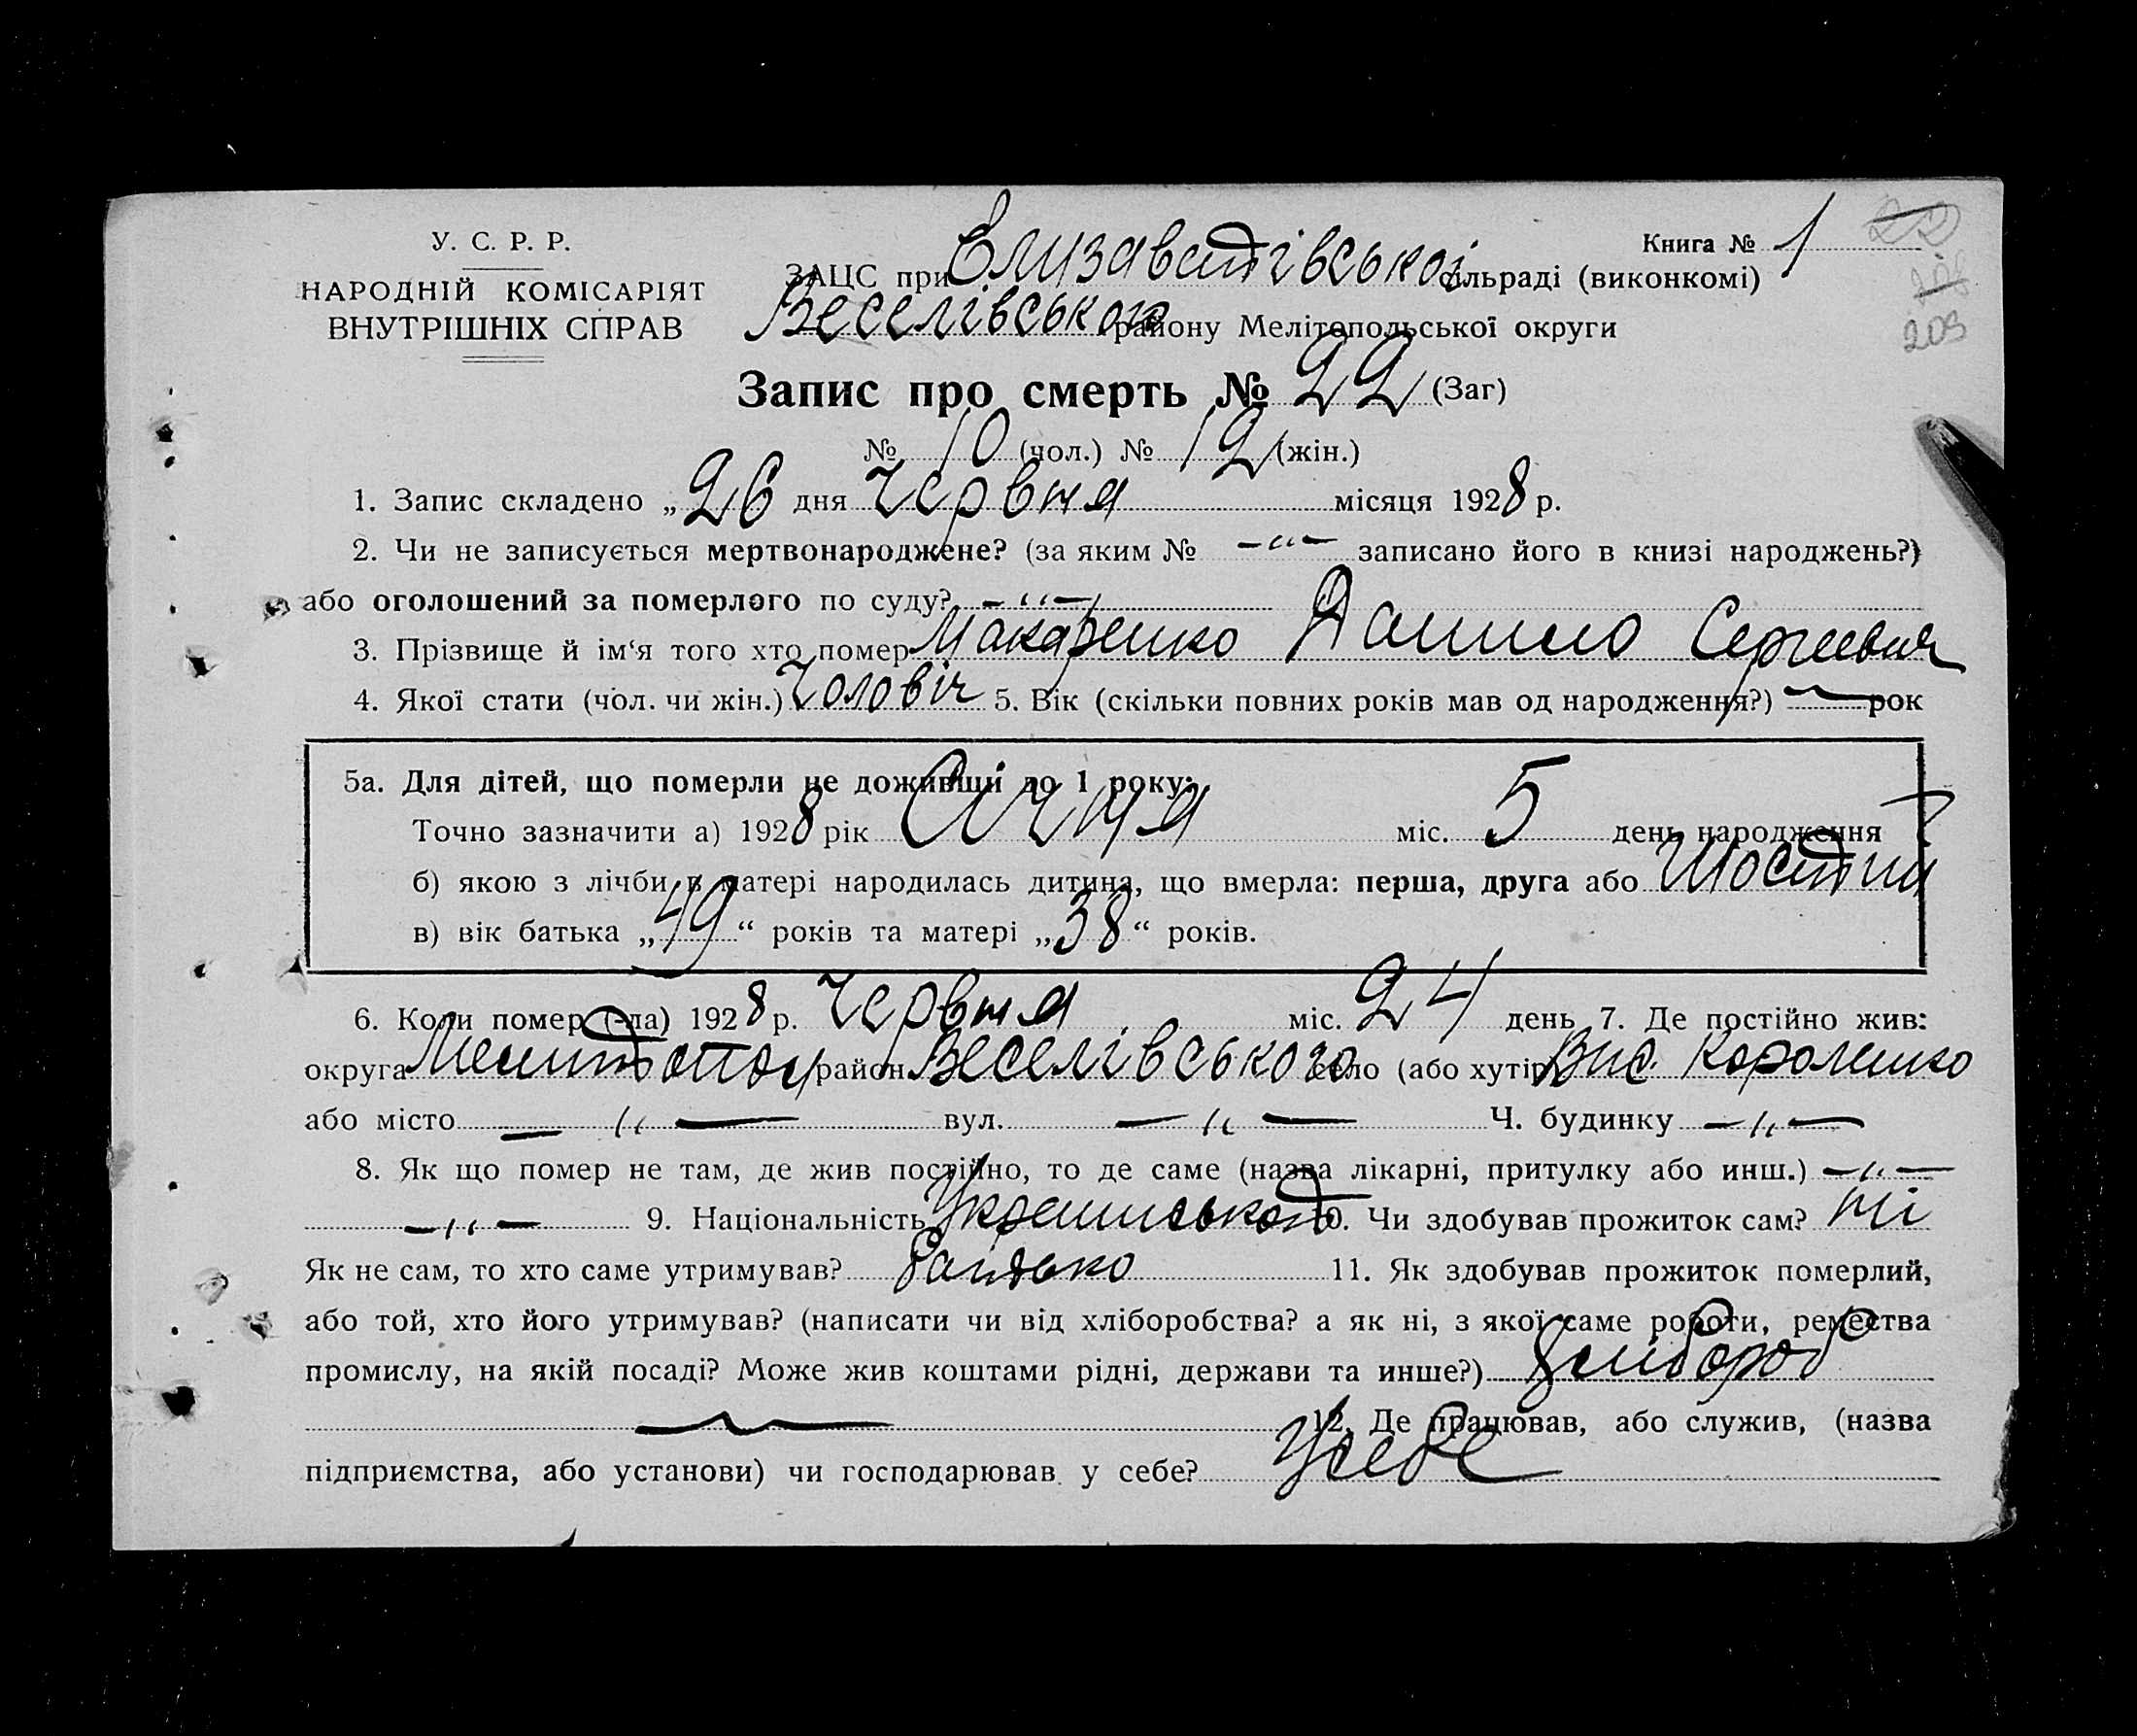 У. С. Р. Р.
НАРОДНІЙ КОМІСАРІЯТ
ВНУТРІШНІХ СПРАВ
Книга № 1
22
203
ЗАЦС при Єлизаветівської сільраді (виконкомі)
Веселівського району Мелітопольської округи
Запис про смерть № 22 (Заг)
№ 10 (чол.) № 12 (жін.)
1. Запис складено „26 дня Червня місяця 1928 р.
2. Чи не записується мертвонароджене? (за яким № —"— записано його в книзі народжень?)
або оголошений за померлого по суду? —"—
3. Прізвище й ім‘я того хто помер Макаренко Данило Сергеевич
4. Якої стати (чол. чи жін.) Чоловіч 5. Вік (скільки повних років мав од народження?) — рок
5а. Для дітей, що померли не доживши до 1 року:
Точно зазначити а) 1928 рік Січня міс. 5 день народження
б) якою з лічби в матері народилась дитина, що вмерла: перша, друга або Шостий
в) вік батька „49“ років та матері „38“ років.
6. Коли помер (-ла) 1928 р. Червня міс. 24 день 7. Де постійно жив:
округа Мелитопол район Веселівського село (або хутір) Вис. Короленко
або місто — " — вул. — " — Ч. будинку —"—
8. Як що помер не там, де жив постійно, то де саме (назва лікарні, притулку або инш.) —"—
—"— 9. Національність 10. Чи здобував прожиток сам? ні
Як не сам, то хто саме утримував? батько 11. Як здобував прожиток померлий,
або той, хто його утримував? (написати чи від хліборобства? а як ні, з якої саме роботи, ремества
промислу, на якій посаді? Може жив коштами рідні, держави та инше?) хлибороб
— 12. Де працював, або служив, (назва
підприємства, або установи) чи господарював у себе? У себе